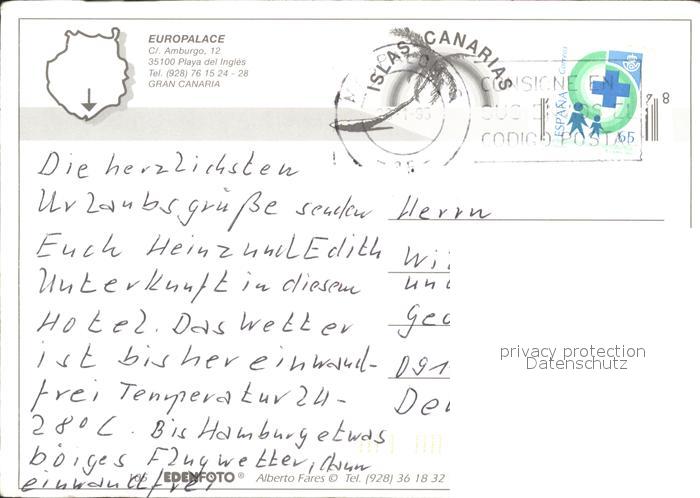 EUROPALACE
C/. Amburgo, 12
35100 Playa del Inglés
Tel. (928) 76 15 24 - 28
GRAN CANARIA
ISLAS CANARIAS
CONSIGNE EN
CODIGO POSTAL
Correos
ESPAÑA
65
78
Die herzlichsten
Urlaubsgrüße senden
Euch Heinz und Edith
Unterkunft in diesem
Hotel. Das Wetter
ist bisher einwand-
frei Temperatur 24-
28°C. Bis Hamburg etwas
böiges Flugwetter, dann
einwandfrei
Herrn
und
privacy protection
Datenschutz
EDENFOTO® Alberto Fares © Tel. (928) 36 18 32